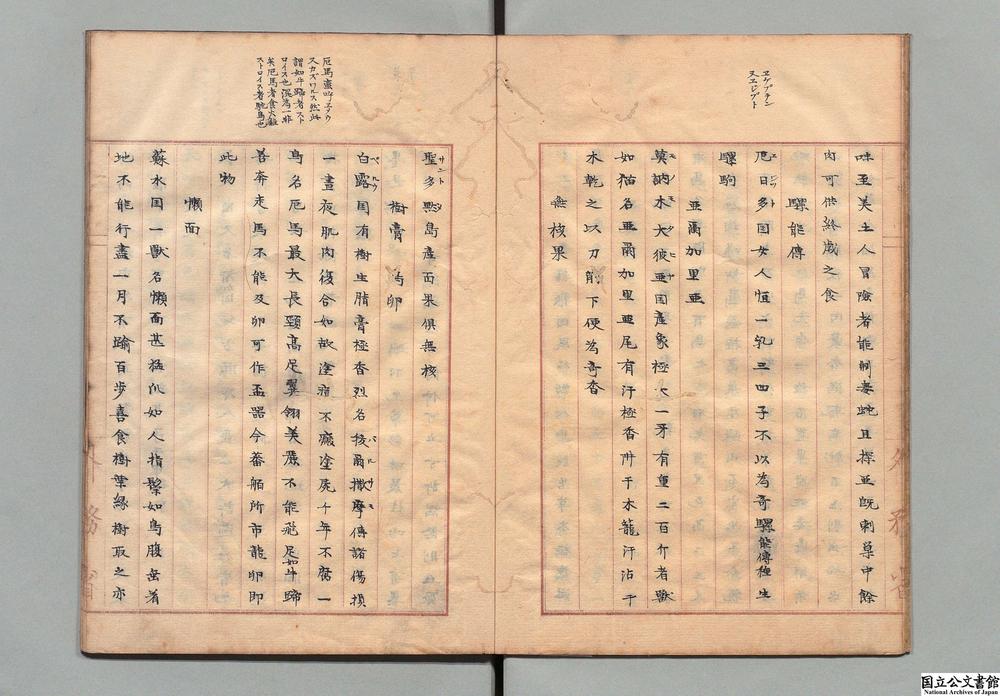 ヱゲプテン
又エジプト
味至美土人冒險者能
且探並既刺草中餘
肉可供終歳之食
騾能傳
厄日多国女人恒一乳三四子不以為奇騾能傳種生
騾駒
亜爾加里亜
莫訥木大彼亜国産象極大一牙有重二百斤者獣
如猫名亜爾加里亜尾有汗極香阱于木籠汗沾于
木乾之以刀削下便為奇香
無核果
聖多黙島産面果俱無核
サント
樹膏 鳥卵
白露国有樹生脂膏極香烈名抜爾撒摩傳諸傷損
ペルウ バルサモ
一晝夜肌肉復合如故塗痘不瘢塗屍千年不腐一
鳥名厄馬最大長頸高足翼翎美麗不能飛足如牛蹄
善奔走馬不能及卵可作盃器今蕃舶所市龍卵即
此物
厄馬
スカズワルス然
謂如牛蹄者スト
ロイス也混為一非
矣厄馬者食火雞
ストロイス者駝鳥也
懶面
蘇水国一獣名懶面甚猛爪如人指鬃如馬腹垂着
地不能行盡一月不踰百歩喜食樹葉縁樹取之亦
外務省
国立公文書館
National Archives of Japan